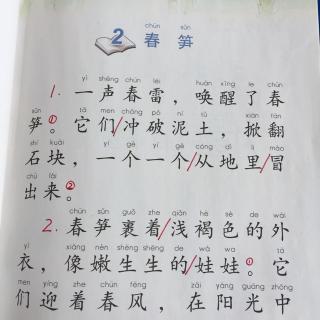 chūn sǔn
2 春笋
yì shēng chūn léi huàn xǐng le chūn
1. 一声春雷，唤醒了春
sǔn tā men chōng pò ní tǔ xiān fān
笋①。它们/冲破泥土，掀翻
shí kuài yí gè yí gè cóng dì lǐ mào
石块，一个一个/从地里/冒
chū lái
出来。②
chūn sǔn guǒ zhe qiǎn hè sè de wài
2. 春笋裹着/浅褐色的外
yī xiàng nèn shēng shēng de wá wa tā
衣，像嫩生生的/娃娃①。它
men yíng zhe chūn fēng zài yáng guāng zhōng
们迎着春风，在阳光中